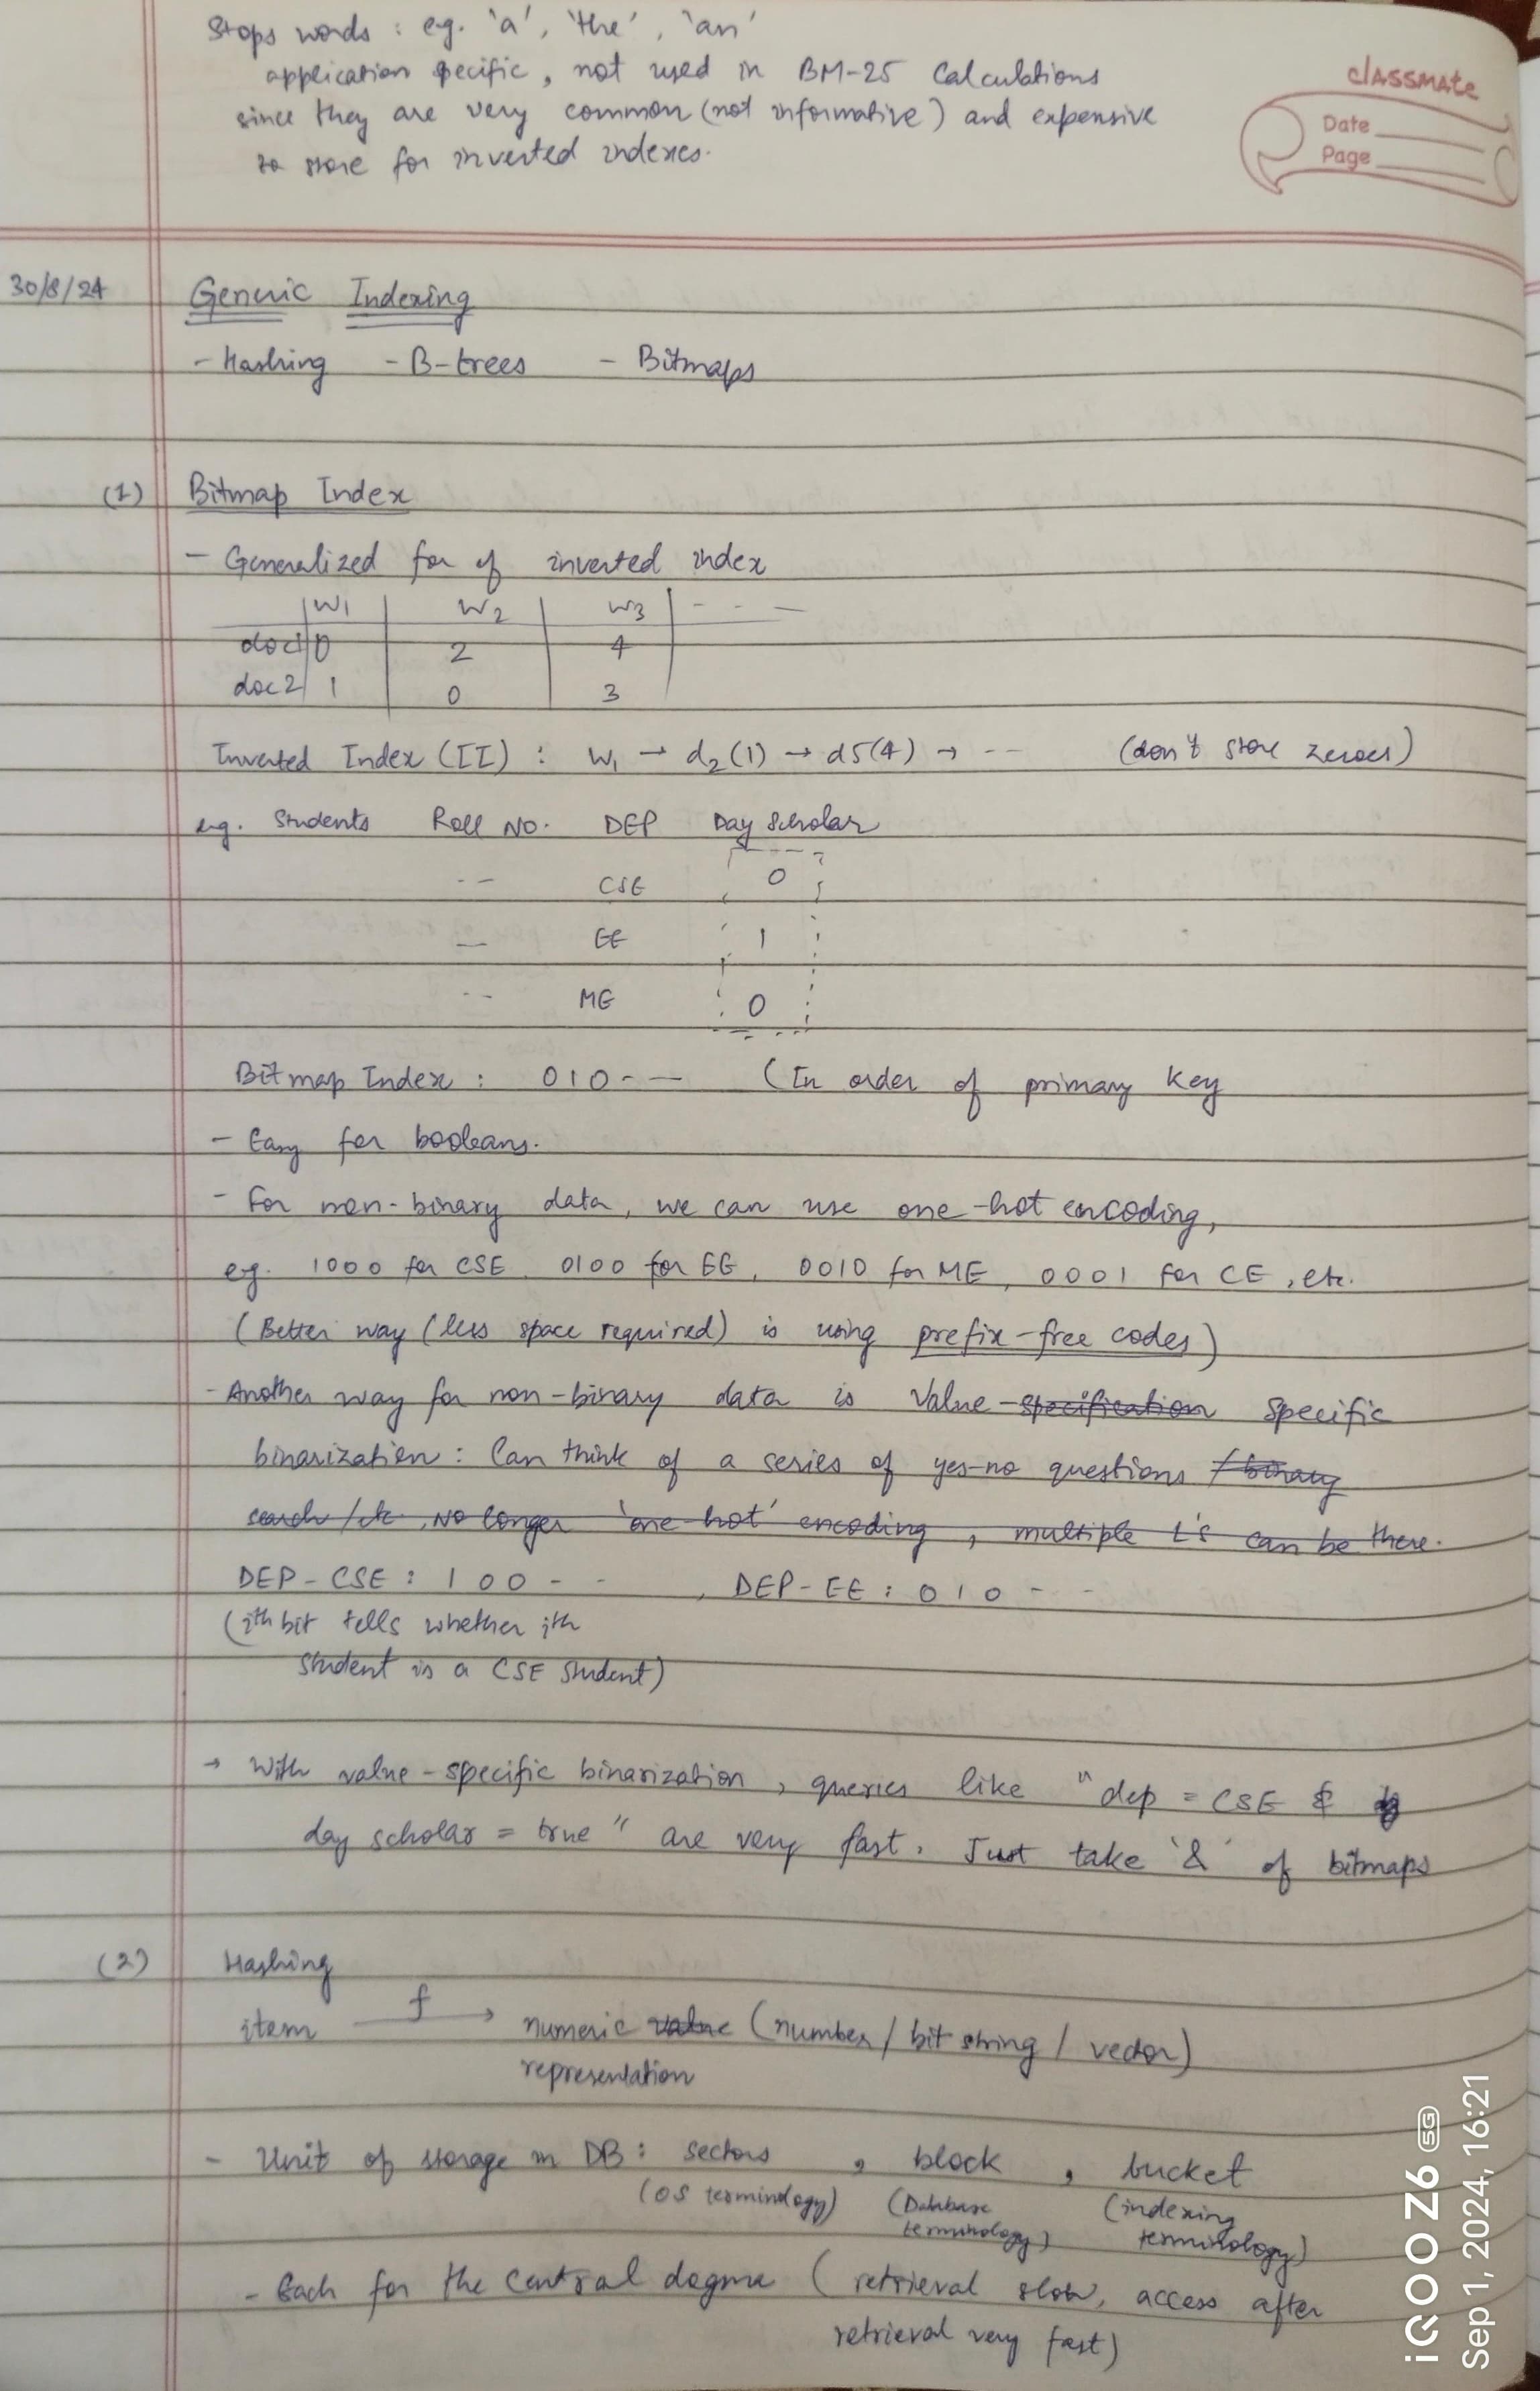 Stops words : eg. 'a', 'the', 'an'
application specific, not used in BM-25 Calculations
since they are very common (not informative) and expensive
to store for inverted indexes.
classmate
Date
Page
30/8/24
Generic Indexing
- Hashing - B-trees - Bitmaps
(1) Bitmap Index
- Generalized for of inverted index
W1 W2 W3 - - -
doc1 0 2 4
doc2 1 0 3
Inverted Index (II) : W1 → d2(1) → d5(4) → -- (don't store zeroes)
eg. Students Roll No. DEP Day Scholar
-- CSE 0
— EE 1
-- ME 0
Bitmap Index : 010-- (In order of primary key
- Easy for booleans.
- For non-binary data, we can use one-hot encoding,
eg. 1000 for CSE, 0100 for EE, 0010 for ME, 0001 for CE, etc.
(Better way (less space required) is using prefix-free codes)
- Another way for non-binary data is Value-specification Specific
binarization : Can think of a series of yes-no questions / binary
search /tc. No longer 'one-hot' encoding, multiple 1's can be there.
DEP-CSE : 100 - - , DEP-EE : 010 - -
(ith bit tells whether ith
student is a CSE student)
→ With value-specific binarization, queries like "dep = CSE &
day scholar = true" are very fast. Just take '&' of bitmaps
(2) Hashing
item f → numeric value (number / bit string / vector)
representation
- Unit of storage in DB : sectors , block , bucket
(OS terminology) (Database terminology) (indexing terminology)
- Each for the central dogma (retrieval slow, access after
retrieval very fast)
iQOO Z6 5G
Sep 1, 2024, 16:21